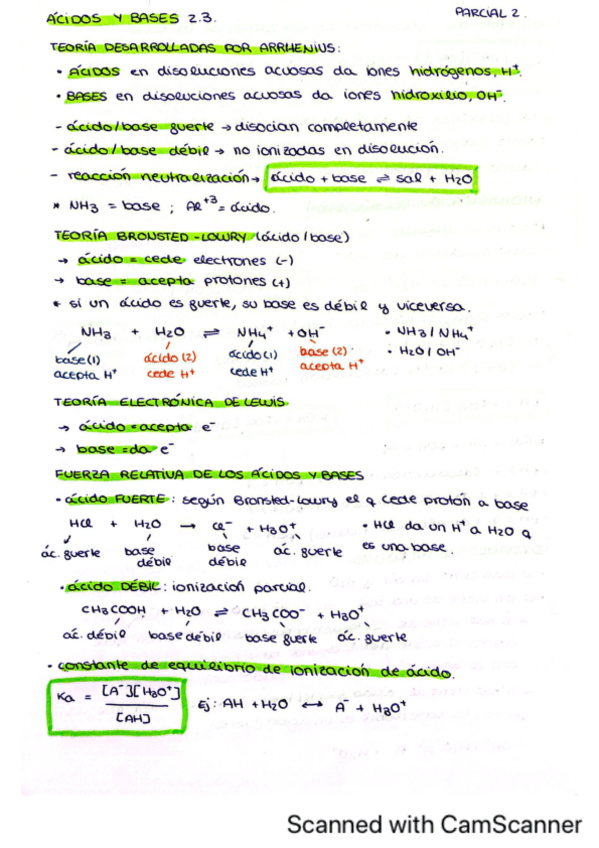 ÁCIDOS Y BASES 2.3.
PARCIAL 2.
TEORÍA DESARROLLADAS POR ARRHENIUS:
• ÁCIDOS en disoluciones acuosas da iones hidrógenos, H⁺.
• BASES en disoluciones acuosas da iones hidroxilio, OH⁻.
- ácido/base fuerte → disocian completamente
- ácido/base débil → no ionizadas en disolución.
- reacción neutralización → ácido + base ⇌ sal + H₂O
* NH₃ = base ; Al⁺³ = ácido.
TEORÍA BRONSTED-LOWRY (ácido/base)
→ ácido = cede electrones (-)
→ base = acepta protones (+)
* si un ácido es fuerte, su base es débil y viceversa.
NH₃ + H₂O ⇌ NH₄⁺ + OH⁻ • NH₃/NH₄⁺
base(1) ácido(2) ácido(1) base(2) • H₂O/OH⁻
acepta H⁺ cede H⁺ cede H⁺ acepta H⁺
TEORÍA ELECTRÓNICA DE LEWIS.
→ ácido = acepta e⁻
→ base = da e⁻
FUERZA RELATIVA DE LOS ÁCIDOS Y BASES
• ácido FUERTE: según Bronsted-Lowry el q cede protón a base
HCl + H₂O → Cl⁻ + H₃O⁺ • HCl da un H⁺ a H₂O q
ác. fuerte base débil base débil ác. fuerte es una base.
• ácido DÉBIL: ionización parcial.
CH₃COOH + H₂O ⇌ CH₃COO⁻ + H₃O⁺
ác. débil base débil base fuerte ác. fuerte
• constante de equilibrio de ionización de ácido.
Ka = [A⁻][H₃O⁺] / [AH] Ej: AH + H₂O ↔ A⁻ + H₃O⁺
Scanned with CamScanner